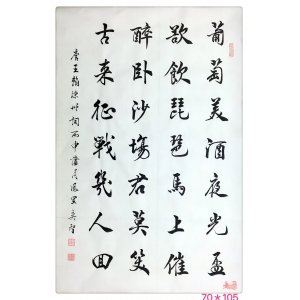 葡萄美酒夜光盃
欲飲琵琶馬上催
醉卧沙場君莫笑
古来征戰幾人回
唐王翰涼州詞丙申
70*105